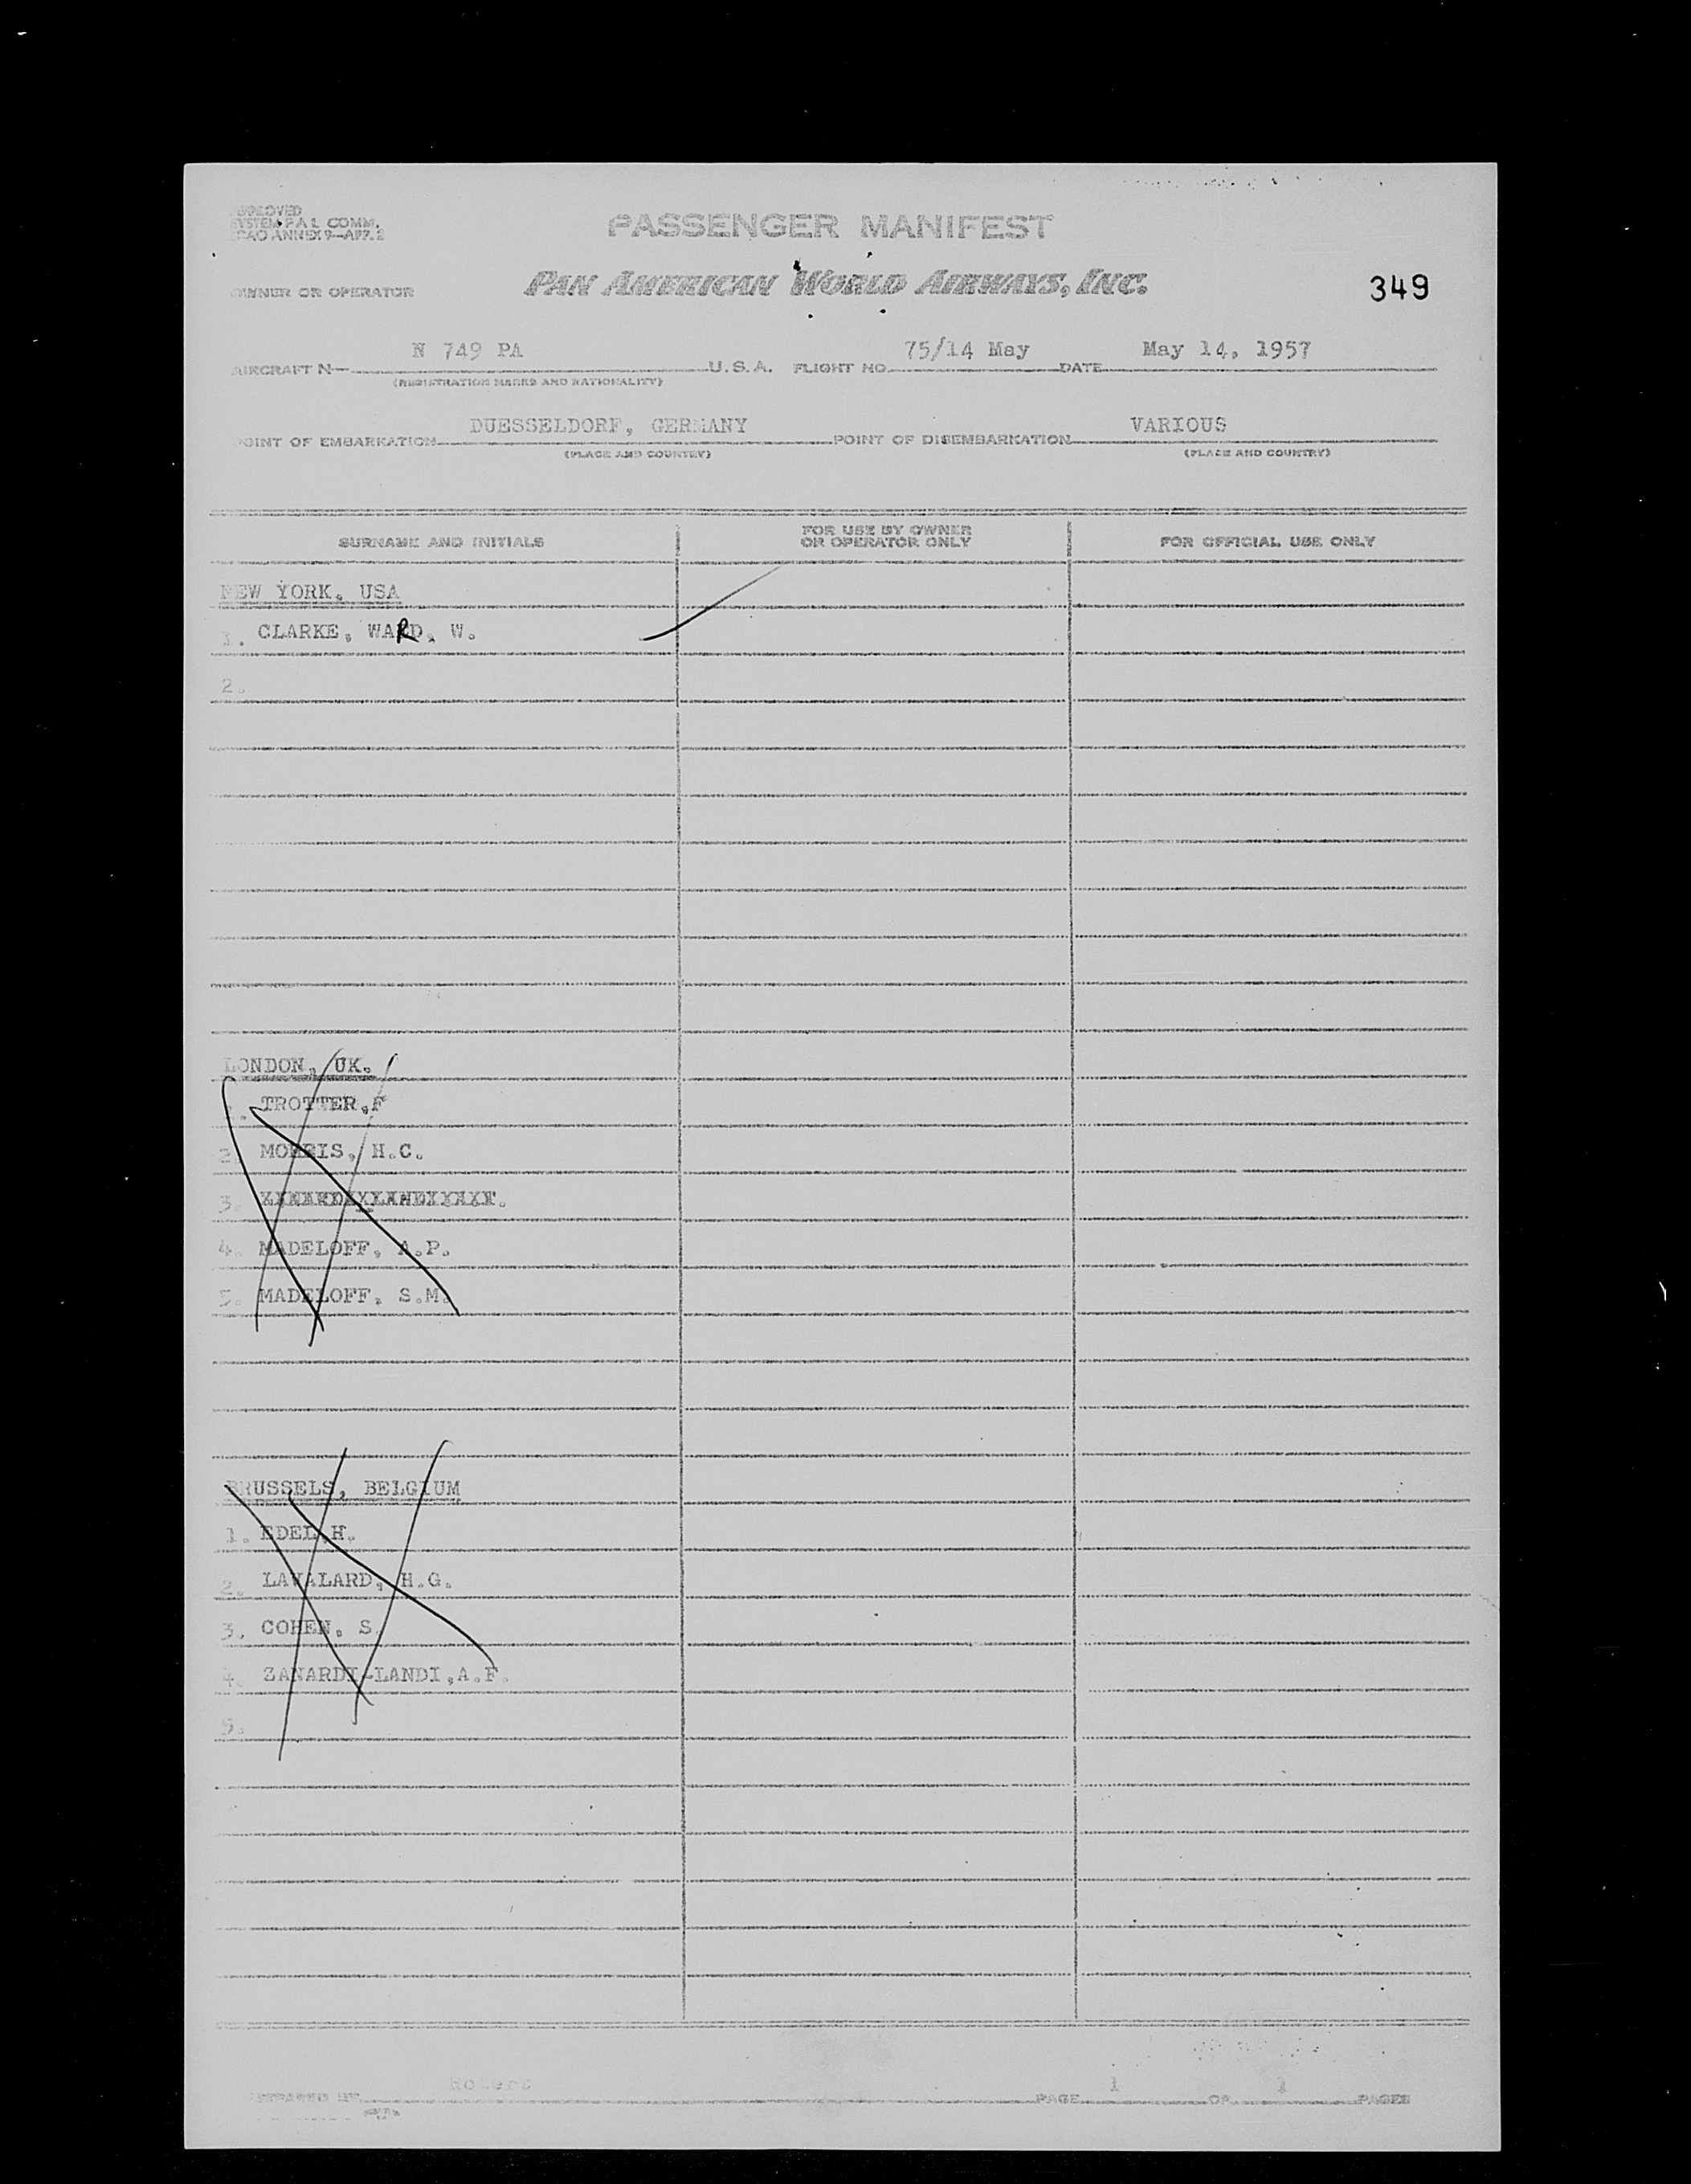 APPROVED
SYSTEM P.A.L. COMM.
ICAO ANNEX 9—APP. 2
PASSENGER MANIFEST
OWNER OR OPERATOR PAN AMERICAN WORLD AIRWAYS, INC. 349
AIRCRAFT N— N 749 PA U.S.A. FLIGHT NO. 75/14 May DATE May 14, 1957
(REGISTRATION MARKS AND NATIONALITY)
POINT OF EMBARKATION DUESSELDORF, GERMANY POINT OF DISEMBARKATION VARIOUS
(PLACE AND COUNTRY) (PLACE AND COUNTRY)
SURNAME AND INITIALS FOR USE BY OWNER OR OPERATOR ONLY FOR OFFICIAL USE ONLY
NEW YORK, USA
1. CLARKE, WARD, W.
2.
LONDON, UK.
1. TROTTER,F
2. MORRIS, H.C.
3.
4. MADELOFF, A.P.
5. MADELOFF, S.M.
BRUSSELS, BELGIUM
1. EDEL,H.
2. LAVALARD, H.G.
3. COHEN, S.
4. ZANARDI-LANDI,A.F.
5.
PREPARED BY PAGE 1 OF 1 PAGES